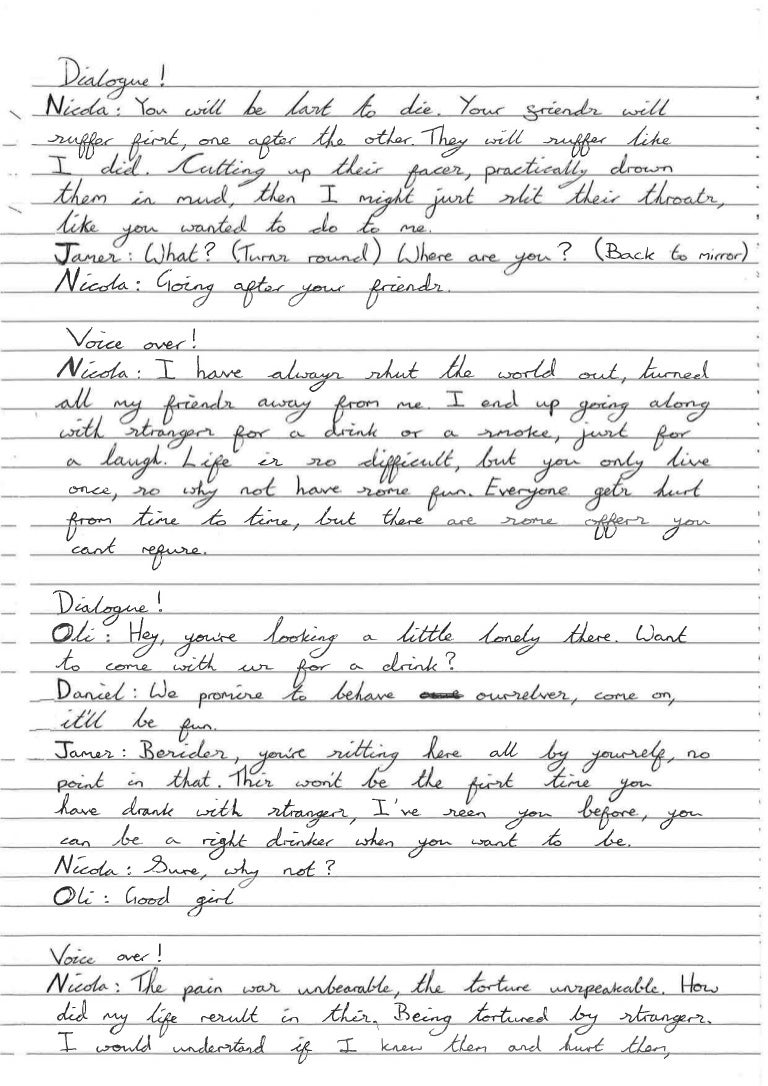 Dialogue!
Nicola: You will be last to die. Your friends will
suffer first, one after the other. They will suffer like
I did. Cutting up their faces, practically drown
them in mud, then I might just slit their throats,
like you wanted to do to me.
James: What? (Turns round) Where are you? (Back to mirror)
Nicola: Going after your friends.
Voice over!
Nicola: I have always shut the world out, turned
all my friends away from me. I end up going along
with strangers for a drink or a smoke, just for
a laugh. Life is so difficult, but you only live
once, so why not have some fun. Everyone gets hurt
from time to time, but there are some offers you
cant refuse.
Dialogue!
Oli: Hey, you're looking a little lonely there. Want
to come with us for a drink?
Daniel: We promise to behave ourselves, come on,
it'll be fun.
James: Besides, you're sitting here all by yourself, no
point in that. This won't be the first time you
have drank with strangers, I've seen you before, you
can be a right drinker when you want to be.
Nicola: Sure, why not?
Oli: Good girl
Voice over!
Nicola: The pain was unbearable, the torture unspeakable. How
did my life result in this. Being tortured by strangers.
I would understand if I knew them and hurt them,